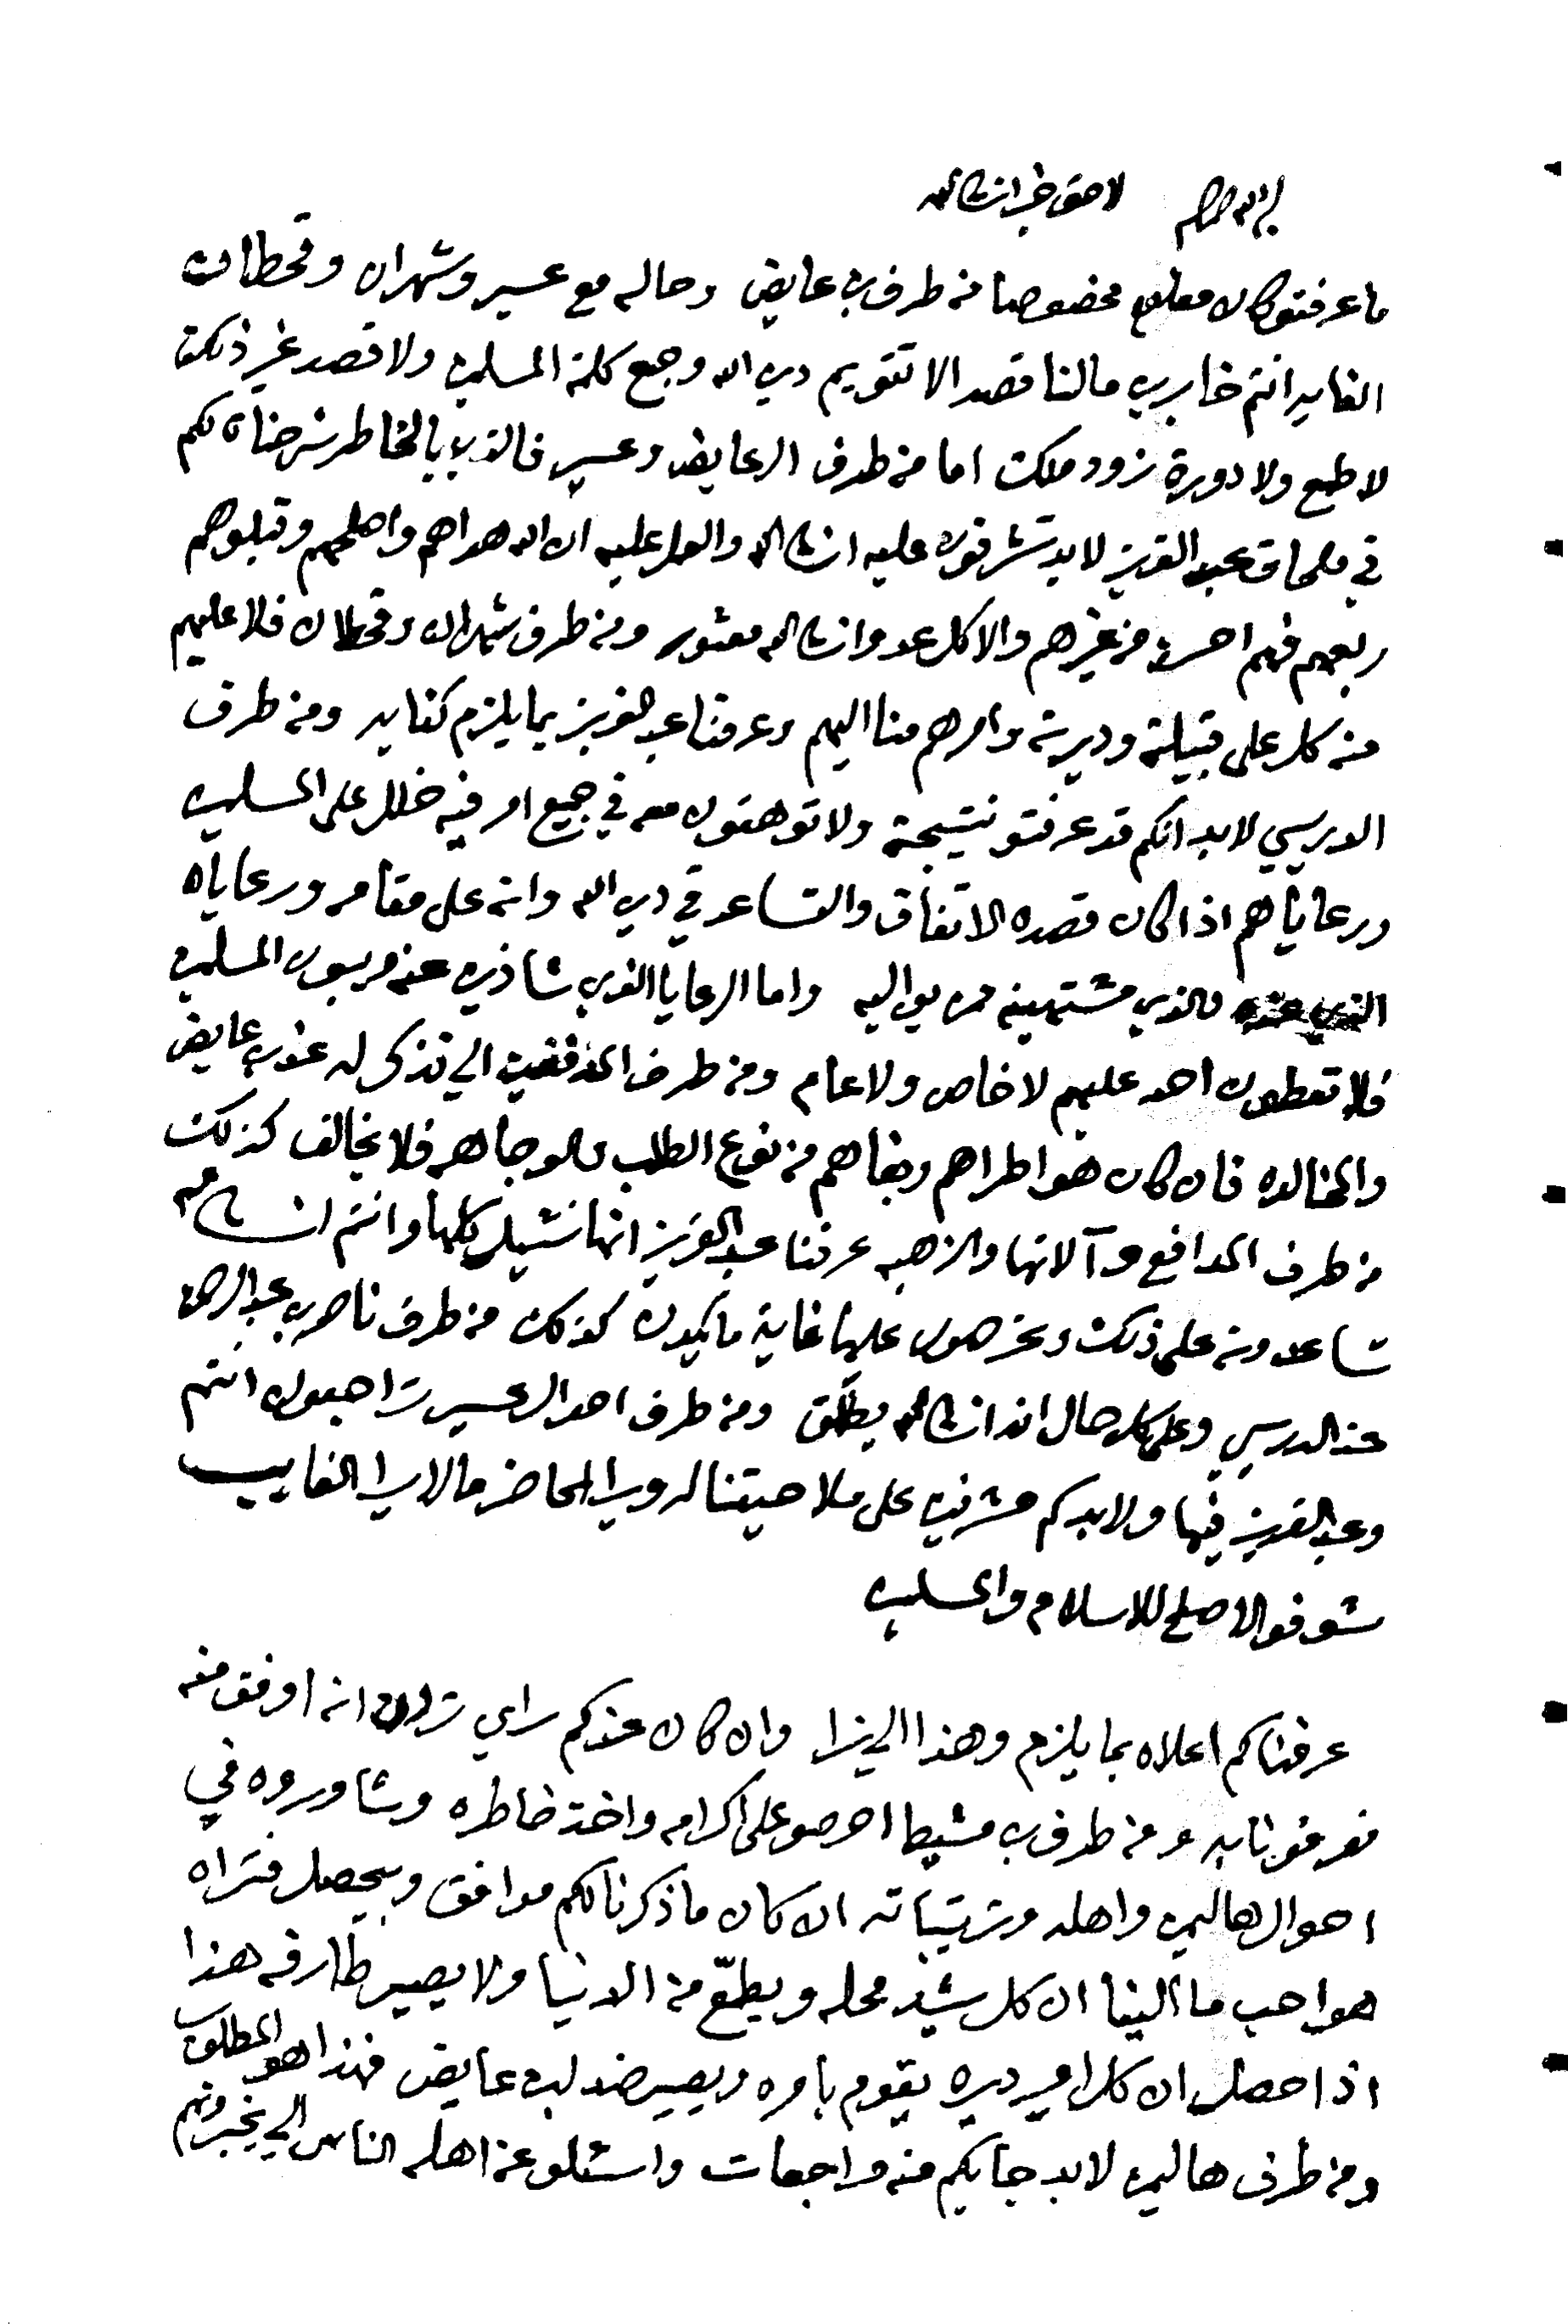 لاحق خير انشالله
ما عرفتوا كان معلوم مخصوصا من طرف بن عايض وحاله مع عسير وشهران وقحطان
الغايه انتم خابرين مالنا قصد الا تقويم دين الله وجمع كلمة المسلمين ولا قصد غير ذلك
لا طمع ولا دورة زود ملك اما من طرف ال عايض وعسير فالذي بالخاطر شرحناه لكم
في ملحاق عبدالعزيز لابد تشرفون عليه انشالله والعمل عليه ان الله هداهم واصلحهم وقبلوهم
ربعهم فهم احسن من غيرهم والا كل عدو انشالله معثور ومن طرف شهران وقحطان فلا عليهم
منه كل على قبيلته وديرته وامرهم منا اليهم وعرفنا عبدالعزيز بما يلزم كفايه ومن طرف
الدريسي لابد انكم قد عرفتو نتيجة ولا توهقون معه في جميع امر فيه خلل على المسلمين
ورعاياهم اذا كان قصده الاتفاق والتساعد في دين الله وانه على مقامه ورعاياه
والذي مشتهينه من يواليه واما الرعايا الذي شاذين عنه ويبون المسلمين
فلا تعطون احد عليهم لا خاص ولا عام ومن طرف الي تذكر له عند بن عايض
فان كان هو اطراهم وبغاهم من نوع الطلب فلا يخالف كذلك
من طرف المدافع وآلاتها والزهبه عرفنا عبدالعزيز انها تشيل كلها وانتم انشالله
تساعدونه على ذلك وتحرصون عليها غاية ما يكون كذلك من طرف ناصر بن عبدالرحمن
عند الدريسي وعلى كل حال انه انشالله يطلق ومن طرف احوال عسير تراجعون انتم
وعبدالعزيز فيها ولابدكم مشرفين على ملاحيقنا له ويرا الحاضر ما لا يرا الغايب
شوفوا الاصلح للاسلام والمسلمين
عرفناكم اعلاه بما يلزم وهذا الي نرا وان كان عندكم راي ترون انه اوفق منه
فعرفونا به ومن طرف بن مشيط احرصو على اكرامه واخذ خاطره وشاوروه في
احوال هاليمن واهله وترتيباته ان كان ما ذكرنا لكم موافق ويحصل فتراه
هو احب ما الينا ان كل شيخ محله ويطمع من الدنيا ولا يصير طارفه هذا
اذا حصل ان كل امير ديره يقوم بامره ويصير ضد لبن عايض فهذا هو المطلوب
ومن طرف هاليمن لابد جايكم منه واجعات واسئلو عن اهله الناس الي يخبرونهم